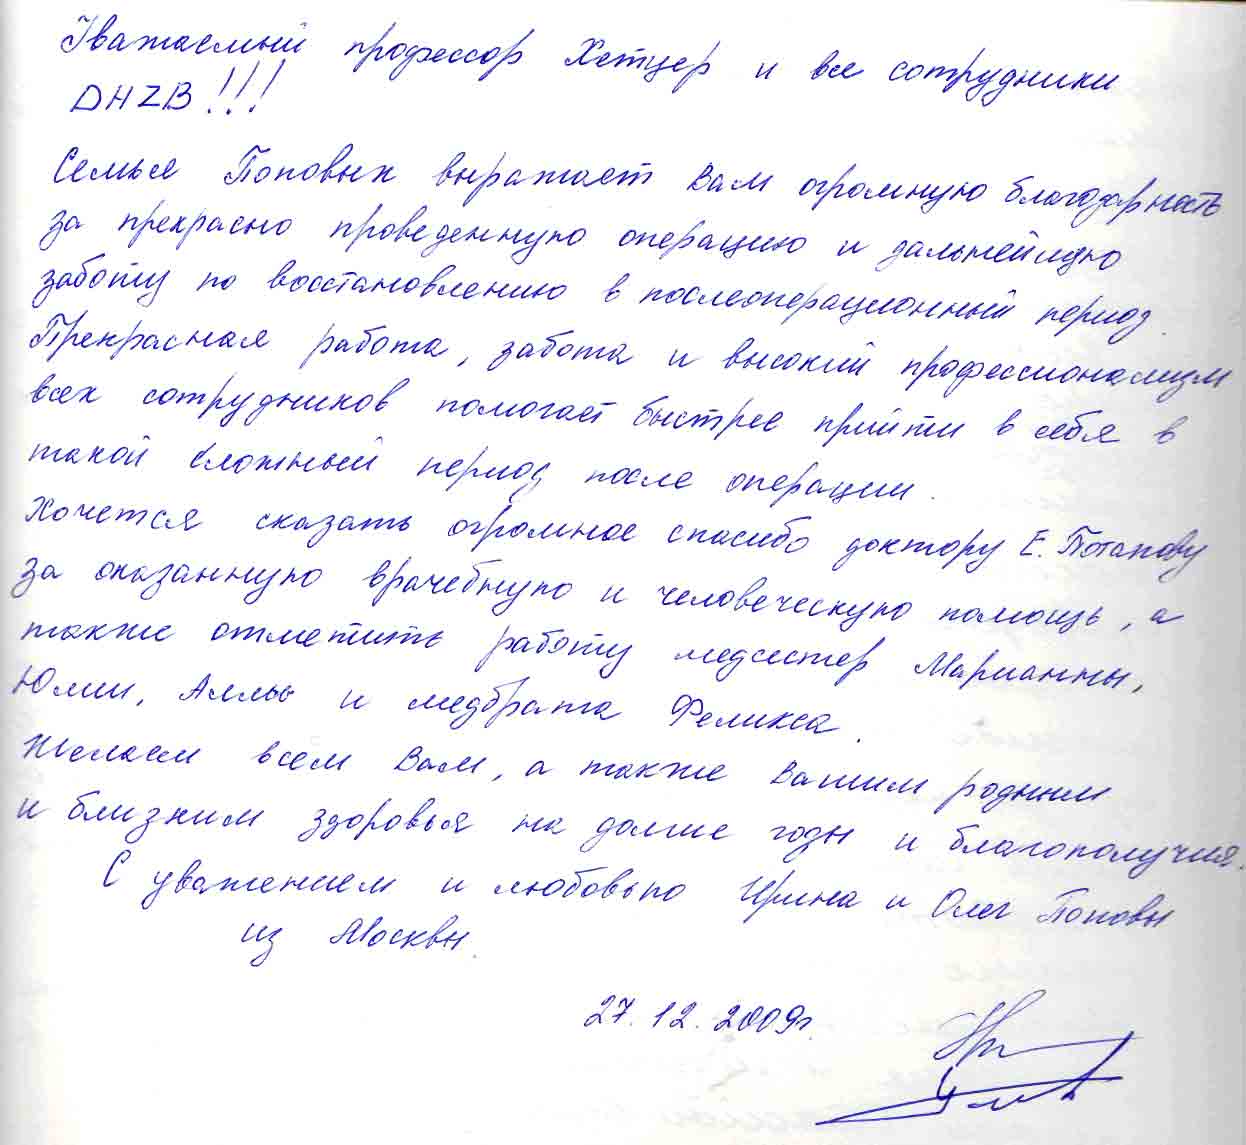 Уважаемый профессор Хетцер и все сотрудники
DHZB!!!
Семья Поповых выражает Вам огромную благодарность
за прекрасно проведенную операцию и дальнейшую
заботу по восстановлению в послеоперационный период.
Прекрасная работа, забота и высокий профессионализм
всех сотрудников помогает быстрее прийти в себя в
такой сложный период после операции.
Хочется сказать огромное спасибо доктору Е. Потапову
за оказанную врачебную и человеческую помощь, а
также отметить работу медсестер Марианны,
Юлии, Аллы и медбрата Феликса.
Желаем всем Вам, а также Вашим родным
и близким здоровья на долгие годы и благополучия.
С уважением и любовью Ирина и Олег Поповы
из Москвы.
27.12.2009г.